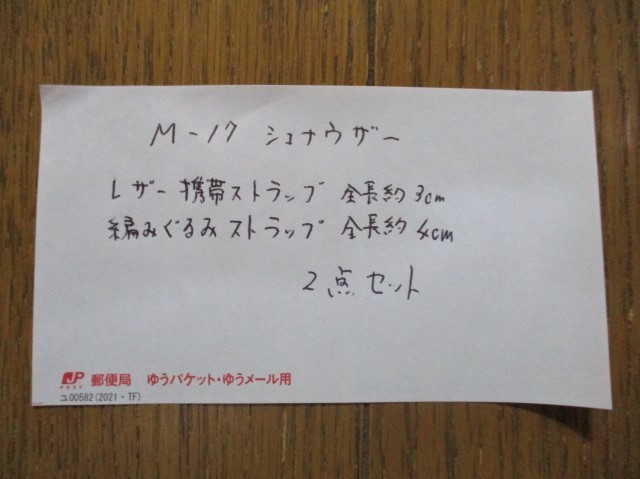 M-17 シュナウザー
レザー携帯ストラップ 全長約3cm
編みぐるみストラップ 全長約4cm
2点セット
JP POST 郵便局 ゆうパケット・ゆうメール用
ユ00582(2021・TF)